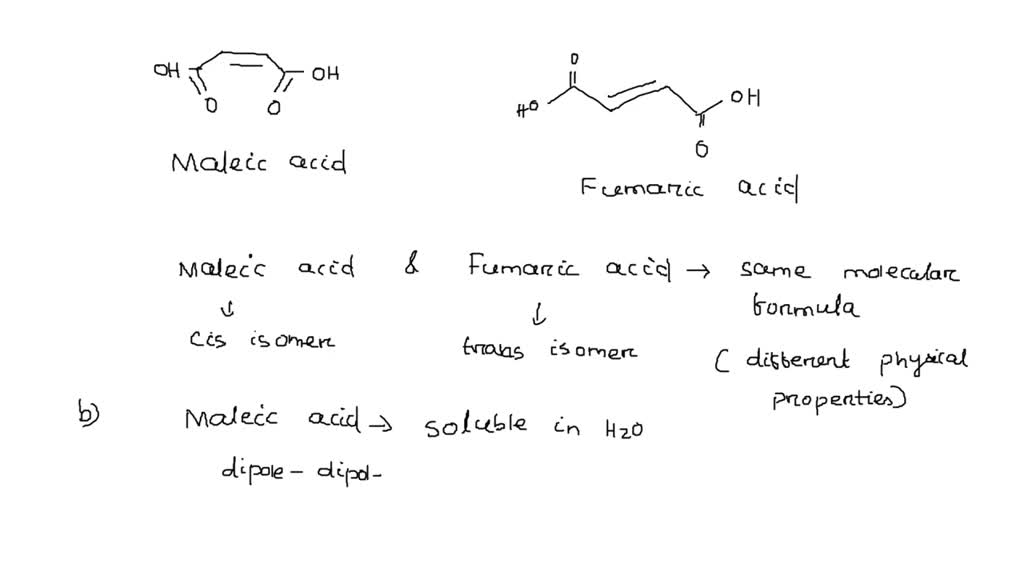 OH OH
O O
Maleic acid
O
HO OH
O
Fumaric acid
Maleic acid & Fumaric acid → same molecular
formula
↓ ↓
cis isomer trans isomer
( different physical
properties)
b) Maleic acid → soluble in H2O
dipole - dipol-